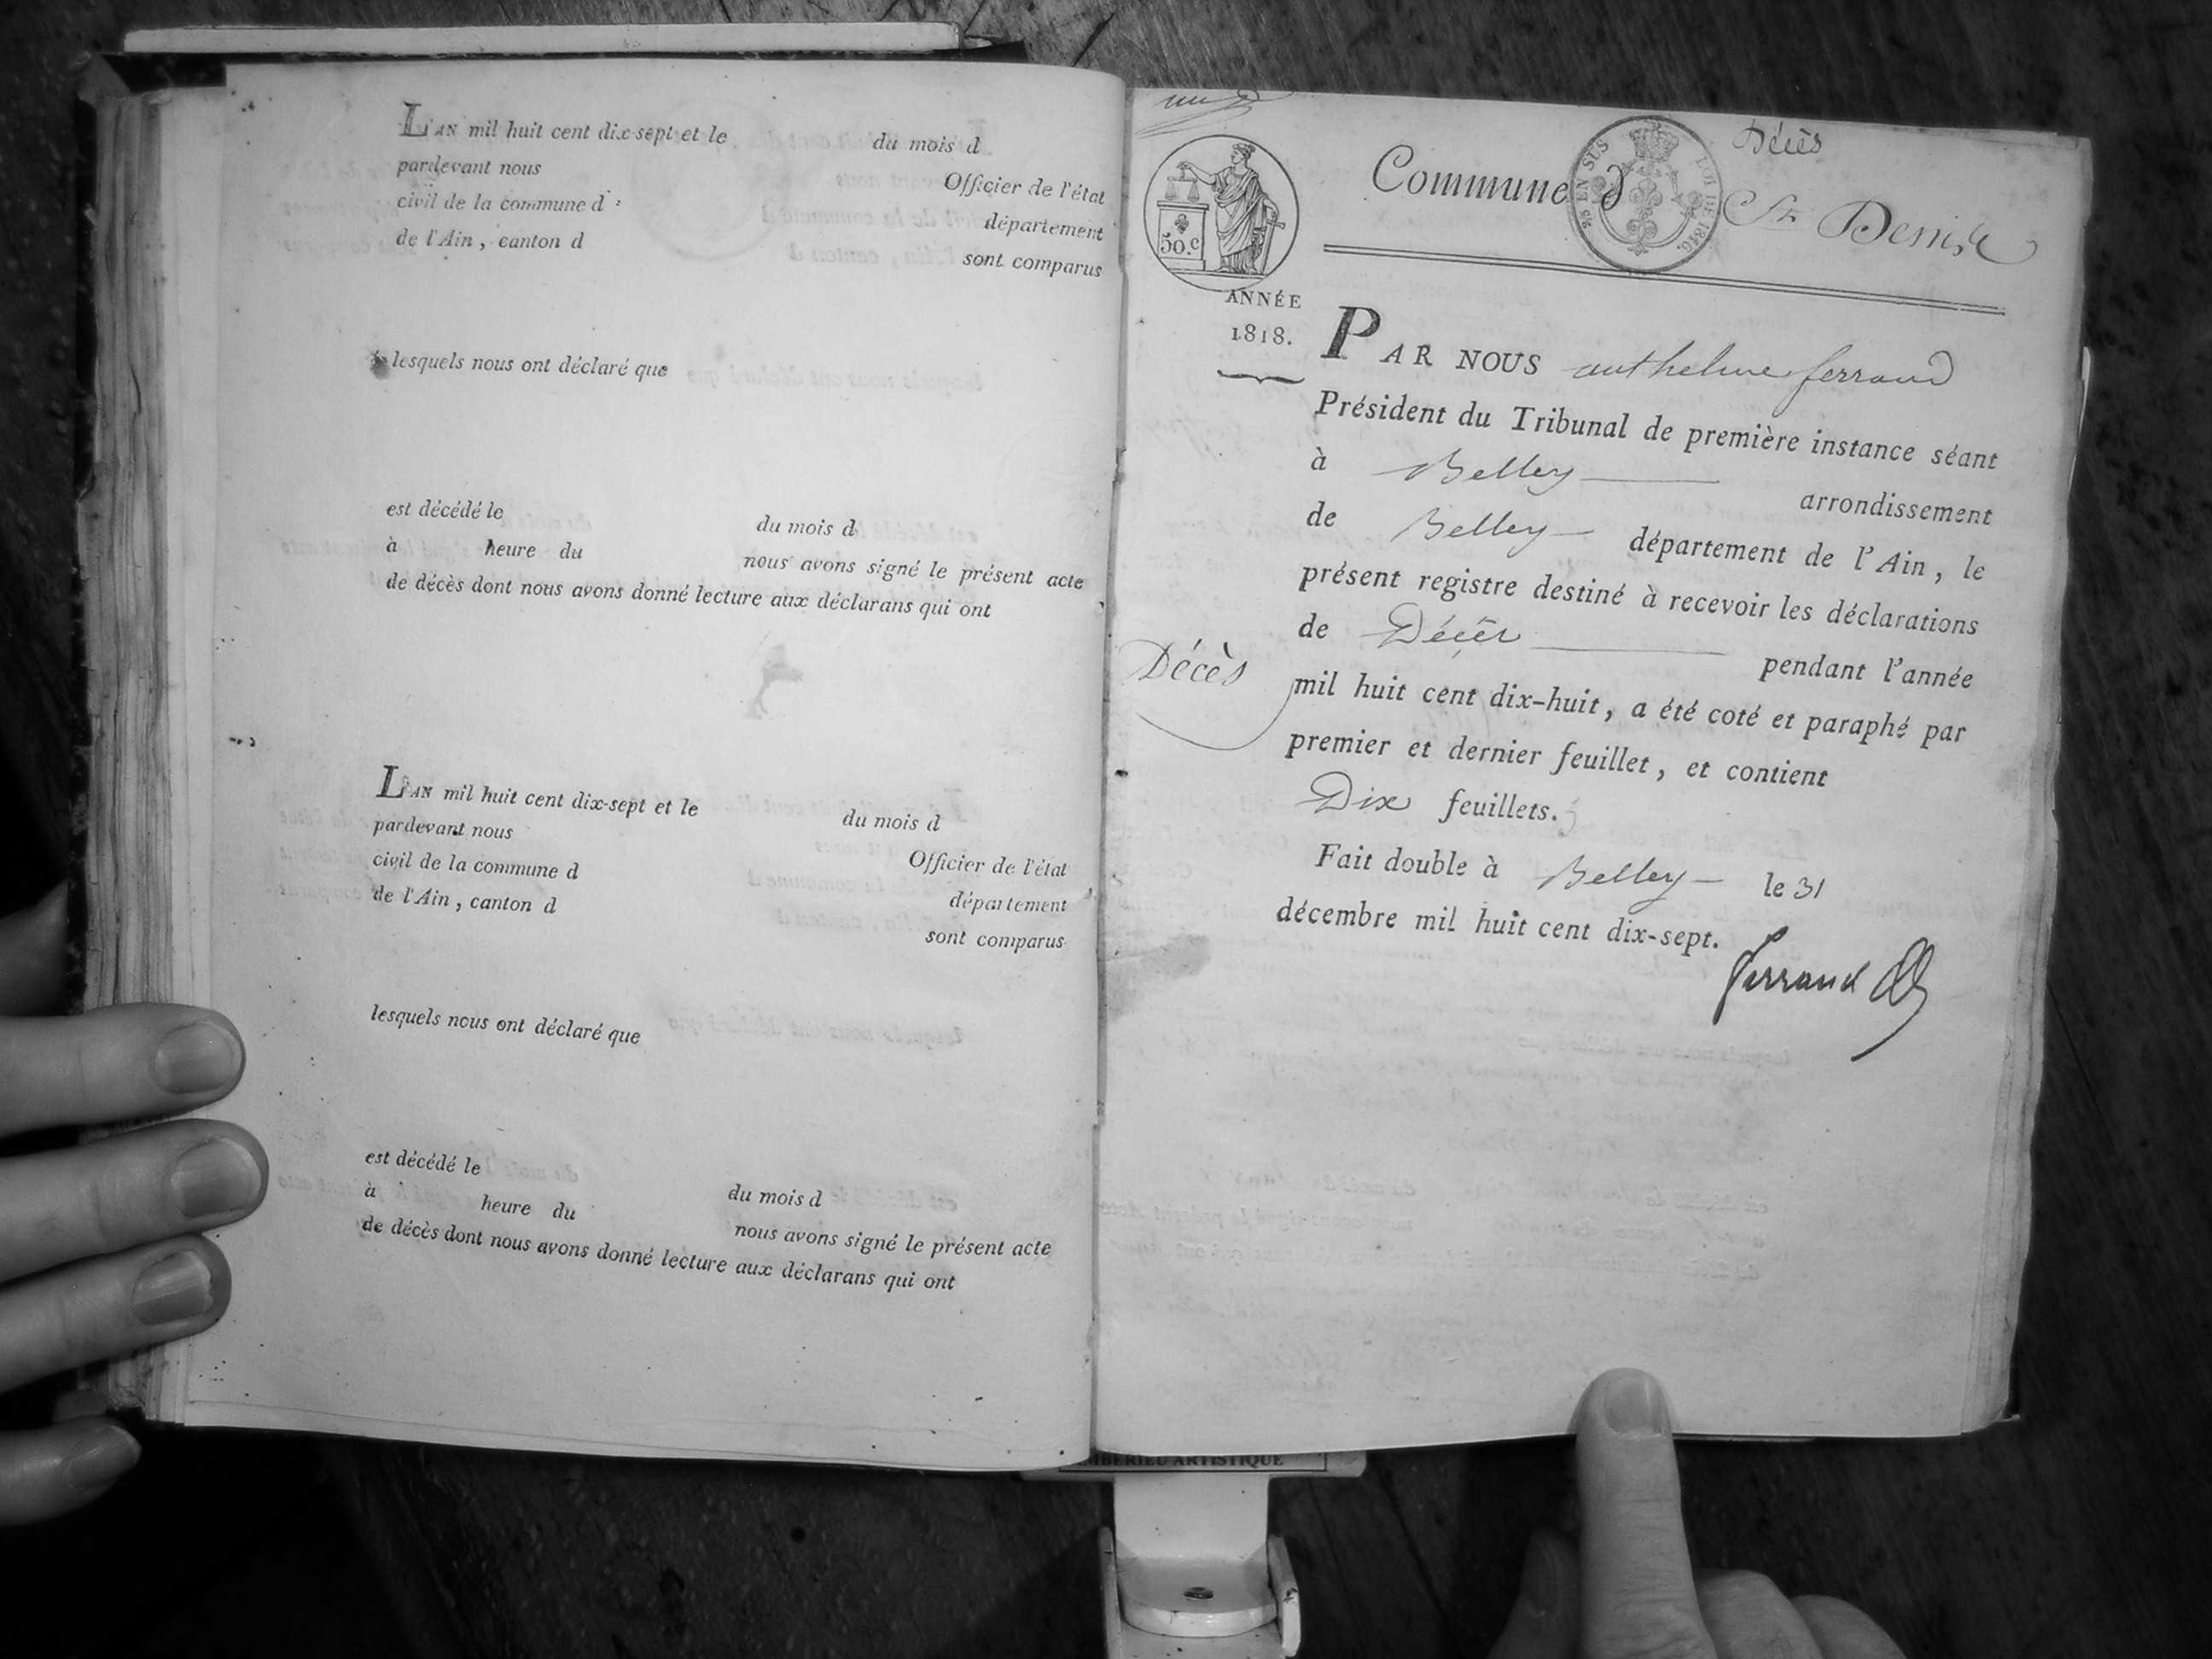 L'AN mil huit cent dix-sept et le du mois d
pardevant nous Officier de l'état
civil de la commune d département
de l'Ain, canton d sont comparus
lesquels nous ont déclaré que
est décédé le du mois d
à heure du nous avons signé le présent acte
de décès dont nous avons donné lecture aux déclarans qui ont
L'AN mil huit cent dix-sept et le du mois d
pardevant nous Officier de l'état
civil de la commune d département
de l'Ain, canton d sont comparus
lesquels nous ont déclaré que
est décédé le du mois d
à heure du nous avons signé le présent acte
de décès dont nous avons donné lecture aux déclarans qui ont
Décès
50.c
EN SUS LOI DE 1816.
Commune d St Denis
ANNÉE
1818.
PAR NOUS anthelme ferrand
Président du Tribunal de première instance séant
à Belley arrondissement
de Belley département de l'Ain, le
présent registre destiné à recevoir les déclarations
de Décès pendant l'année
Décès
mil huit cent dix-huit, a été coté et paraphé par
premier et dernier feuillet, et contient
Dix feuillets.
Fait double à Belley le 31
décembre mil huit cent dix-sept.
ferrand
MBERIEU ARTISTIQUE